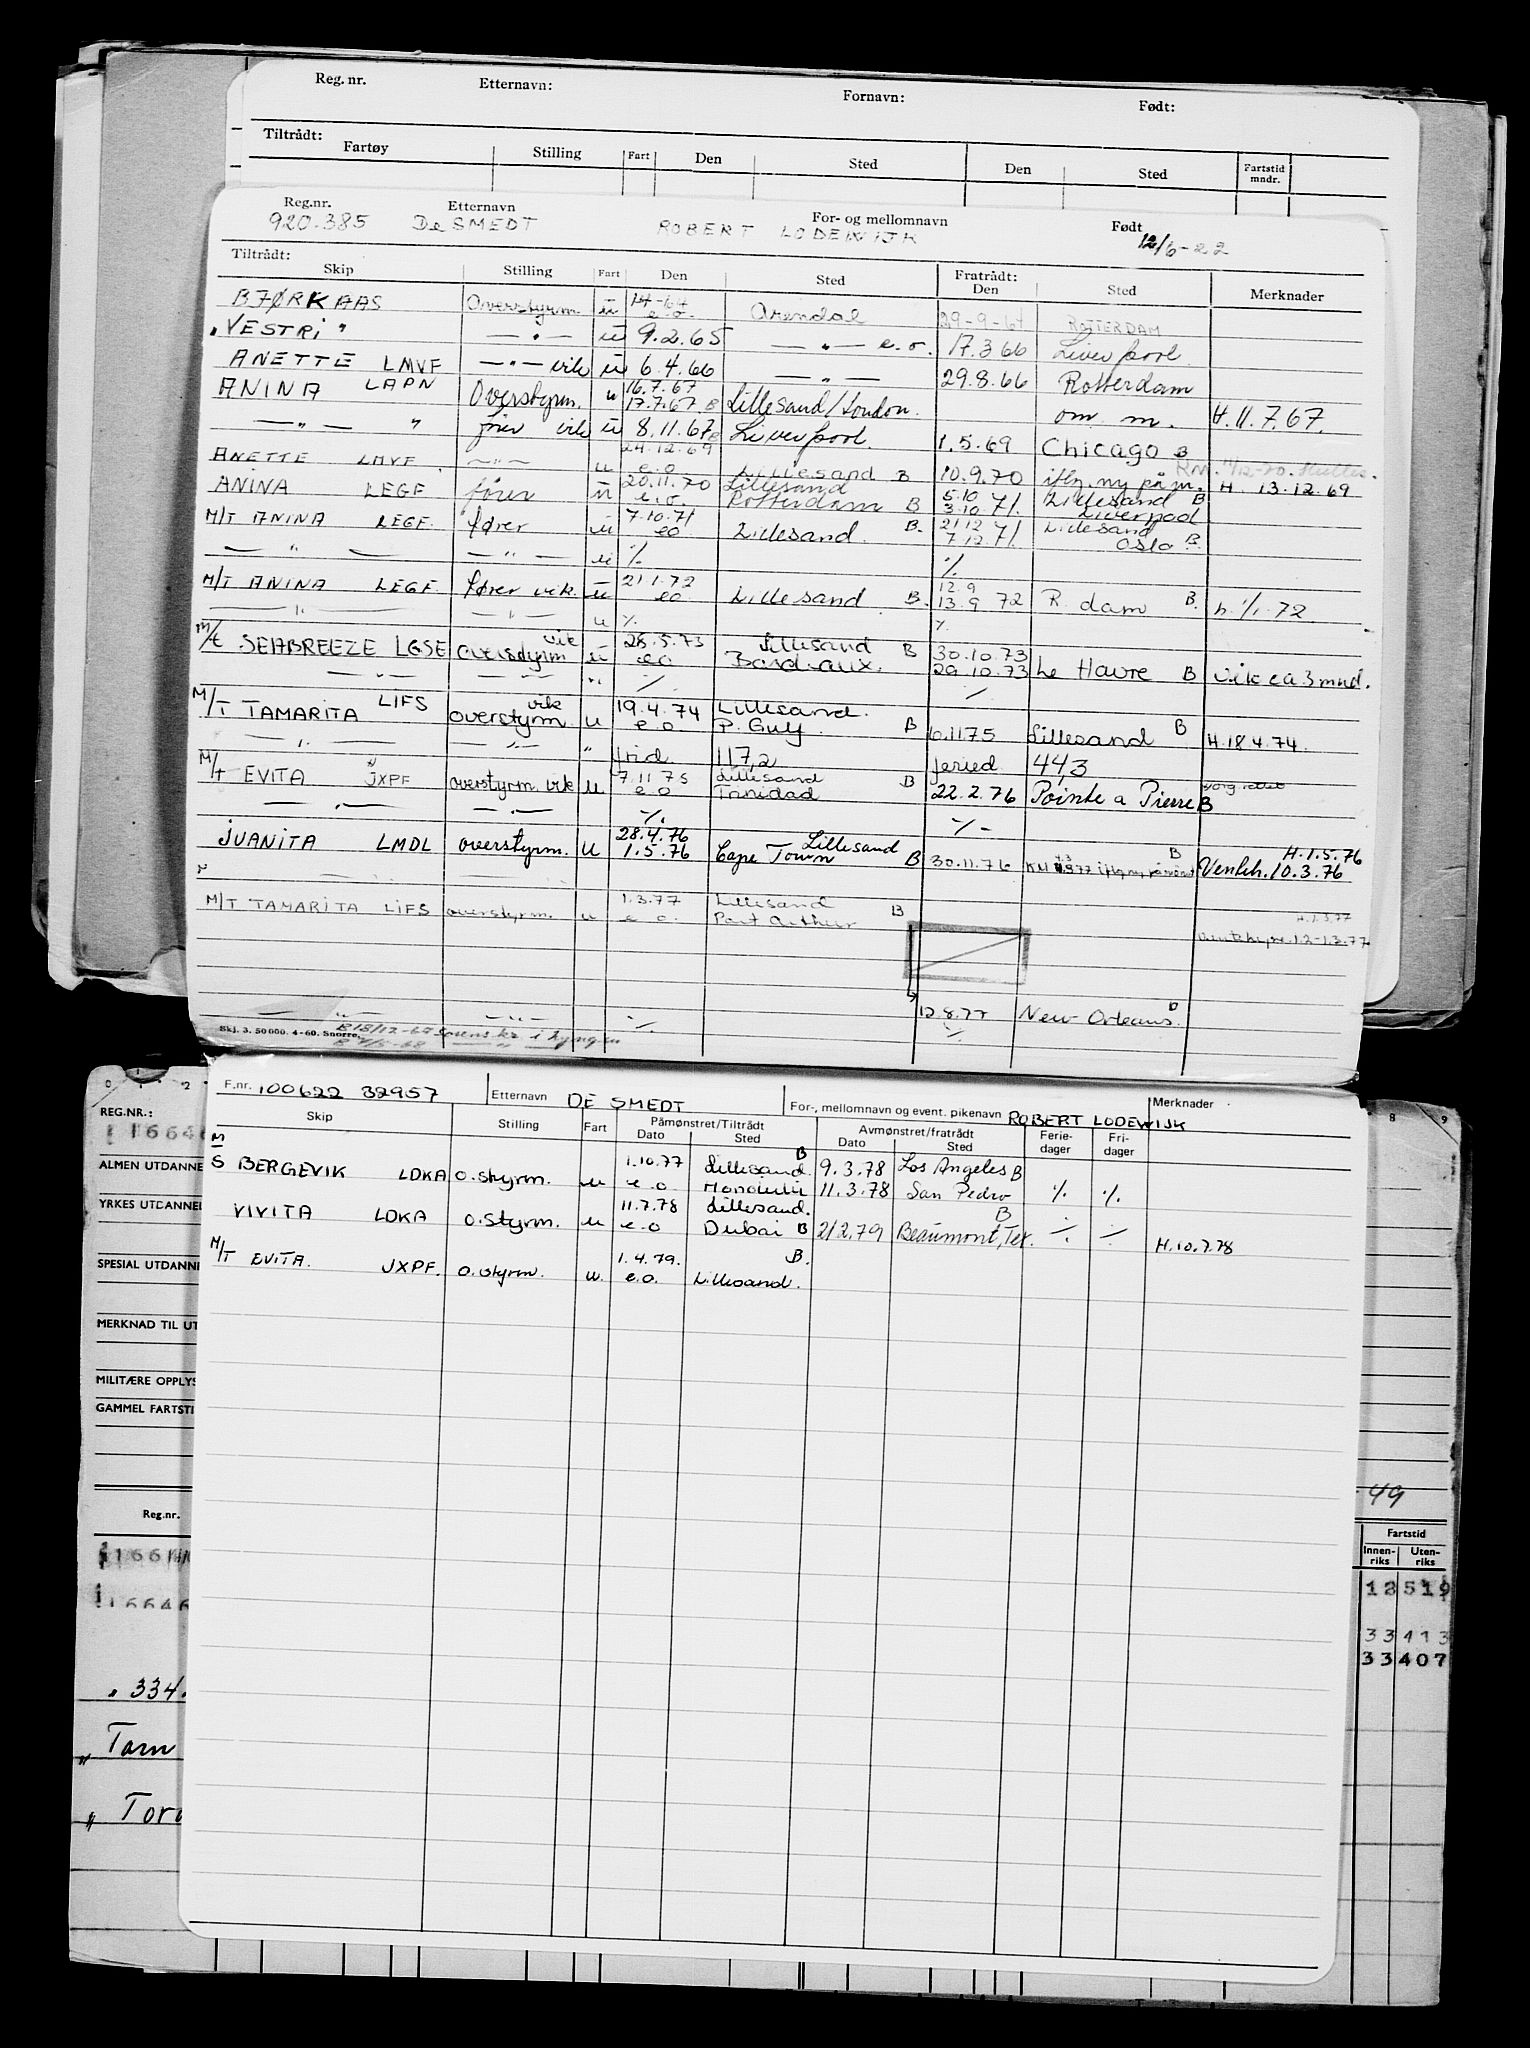 Reg. nr. Etternavn: Fornavn: Født:
Tiltrådt:
Fartøy Stilling Fart Den Sted Den Sted Fartstid mndr.
Reg.nr. Etternavn For- og mellomnavn Født
920.385 De SMEDT ROBERT LODEWIJK 12/6-22
Tiltrådt: Fratrådt:
Skip Stilling Fart Den Sted Den Sted Merknader
BJØRKAAS Overstyrm. u e.o. Arendal 29-9-64 ROTTERDAM
"VESTRI" —"— u 9.2.65 —"— e.o. 17.3 66 Liverpool
ANETTE LMVF —"— vik u 6.4.66 —"— 29.8.66 Rotterdam
ANINA LAPN Overstyrm. u 16.7.67 17.7.67 B Lillesand/London. om. m. H.11.7.67.
—"— " fører vik u 8.11.67 B Liverpool. 1.5.69 Chicago B
ANETTE LMVF —"— u 24.12.69 e.o. Lillesand B 10.9.70 iflg. ny påm. H. 13.12.69
ANINA LEGF fører u 20.11.70 e.o. Lillesand Rotterdam B 5.10 3.10.71. Lillesand B Liverpool
M/T ANINA LEGF. fører u 7.10.71 eo Lillesand. B. 21.12 7.12.71. Lillesand Oslo B.
—"— —"— u % %
M/T ANINA LEGF. fører vik. u 21.1.72 eo Lillesand B. 12.9 13.9 72 R. dam B. h. 1/1.72
—"— —"— u % %
M/t SEABREEZE LGSE overstyrm vik u 28.5.73 eo. Lillesand B Bordeaux. 30.10.73 29.10.73 Le Havre B vik ca 3 mnd.
—"— —"— " % %
M/T TAMARITA LIFS overstyrm. vik u 19.4.74 e.o. Lillesand. P. Gulf. B 6.11 75 Lillesand B H.18.4.74.
—"— —"— " frid. 117,2 feried 44,3
M/T EVITA JXPF overstyrm. vik u 7.11 75 e o Lillesand B 22.2.76 Pointe a Pierre B
—"— —"— % %
JUANITA LMDL overstyrm. u 28.4.76 1.5.76 Lillesand Cape Town B 30.11.76 B H.1.5.76 10.3.76
M/T TAMARITA LIFS overstyrm. u 1.3.77 e o. Lillesand Port Arthur B H.1.3.77
1.2-1.3.77
12.8.77 New Orleans. B
—"— —"— % %
Skj. 3. 50 000. 4-60. Snorre.
F.nr. 100622 32957 Etternavn DE SMEDT For-, mellomnavn og event. pikenavn ROBERT LODEWIJK Merknader
Skip Stilling Fart Påmønstret/Tiltrådt Dato Sted Avmønstret/fratrådt Dato Sted Ferie-dager Fri-dager
M/S BERGEVIK LDKA o.styrm. u 1.10.77 e.o. Lillesand. B Honolulu 9.3.78 11.3.78 Los Angeles B San Pedro % %
VIVITA LDKA o.styrm. u 11.7.78 e.o Lillesand. Dubai B 21.2.79 Beaumont, Tex. B % % H.10.7.78
M/T EVITA. JXPF. o.styrm. u. 1.4.79. e.o. B. Lillesand.
0 1 2 8 9
REG.NR.:
ALMEN UTDANNE
YRKES UTDANNE
SPESIAL UTDANNE
MERKNAD TIL UT
MILITÆRE OPPLYS
GAMMEL FARTSTI
49
Reg.nr. Fartstid
Innen-riks Uten-riks
12519
33413
33407
" 334.
" Torn
" Tor